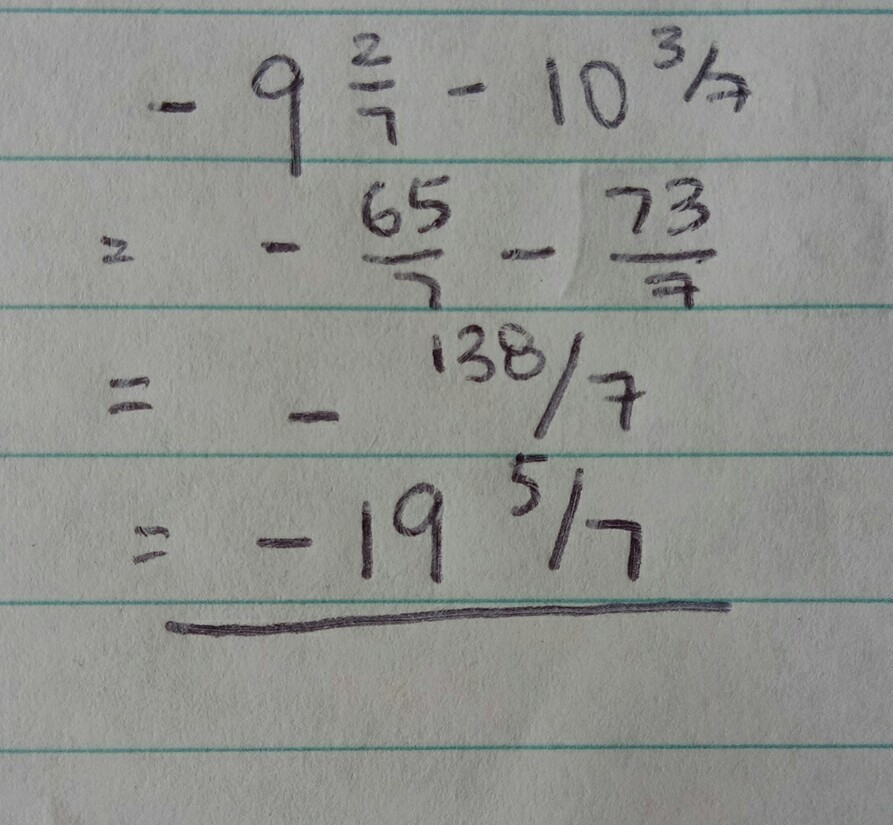 - 9 2/7 - 10 3/7
= - 65/7 - 73/7
= - 138/7
= - 19 5/7